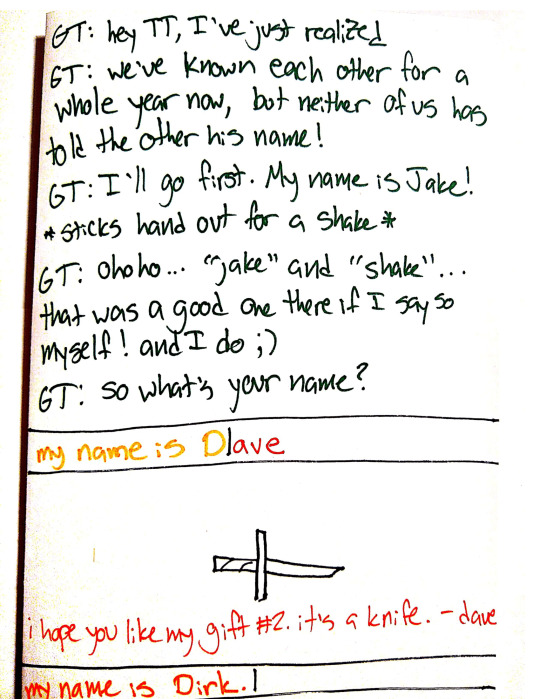 GT: hey TT, I've just realized
GT: we've known each other for a
whole year now, but neither of us has
told the other his name!
GT: I'll go first. My name is Jake!
*sticks hand out for a shake*
GT: Ohoho... "jake" and "shake"...
that was a good one there if I say so
myself! and I do ;)
GT: so what's your name?
my name is D|ave
i hope you like my gift #2. it's a knife. - dave
my name is Dirk.|